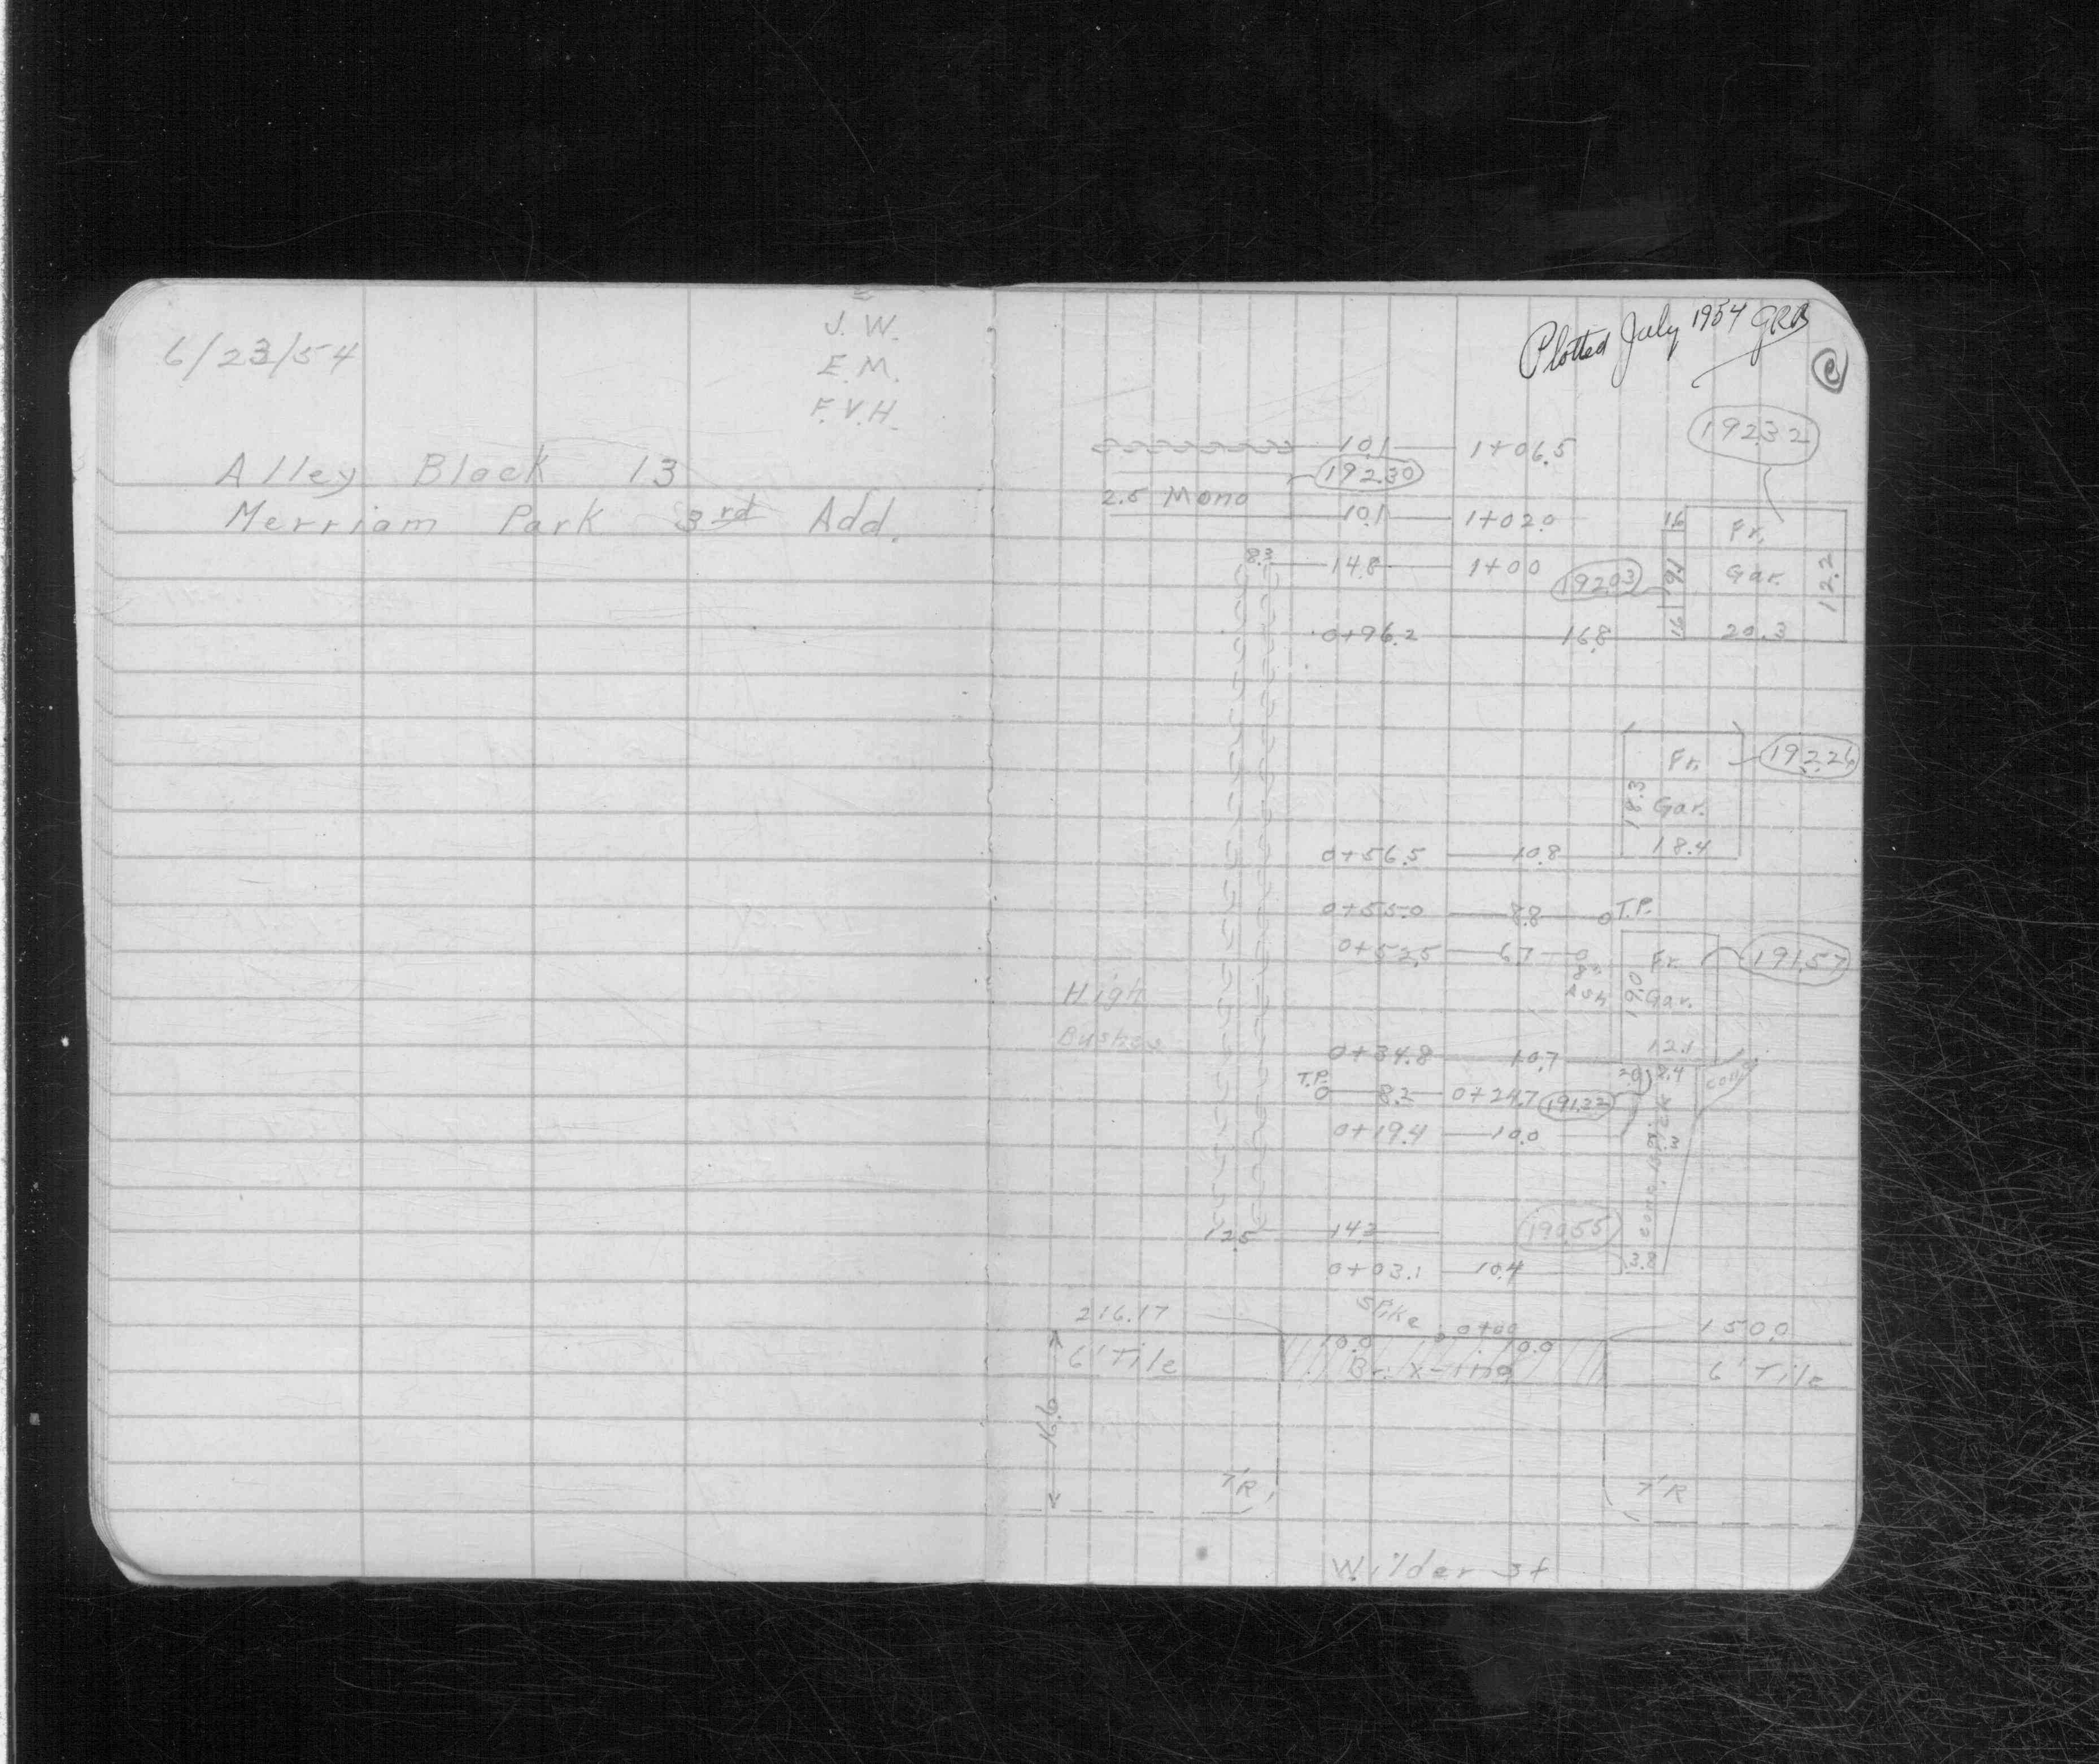 6/23/54
J. W.
E. M.
F. V. H.
Alley Block 13
Merriam Park 3rd Add.
Plotted July 1954 GRB
19232
10.1 1+06.5
192.30
2.5 Mono
10.1 1+02.0
16 Fr.
8.3 14.8 1+00 192.03 19.1 Gar. 12.2
0+96.2 16.8 16 20.3
Fr. 192.26
18.3 Gar.
0+56.5 10.8 18.4
0+55.0 8.8 T.P.
0+52.5 6.7 8" Fr. 191.57
High Ash 19.0 Gar.
Bushes
0+34.8 10.7 12.1
T.P. 8.2 0+24.7 191.22 8.4 conc.
0+19.4 10.0
12.5 14.3 190.55
0+03.1 10.4 3.8
216.17 Spike 0+00 150.0
10.0 10.0
6' Tile Br. X-ing 6' Tile
16.6
7'R 7'R
Wilder St